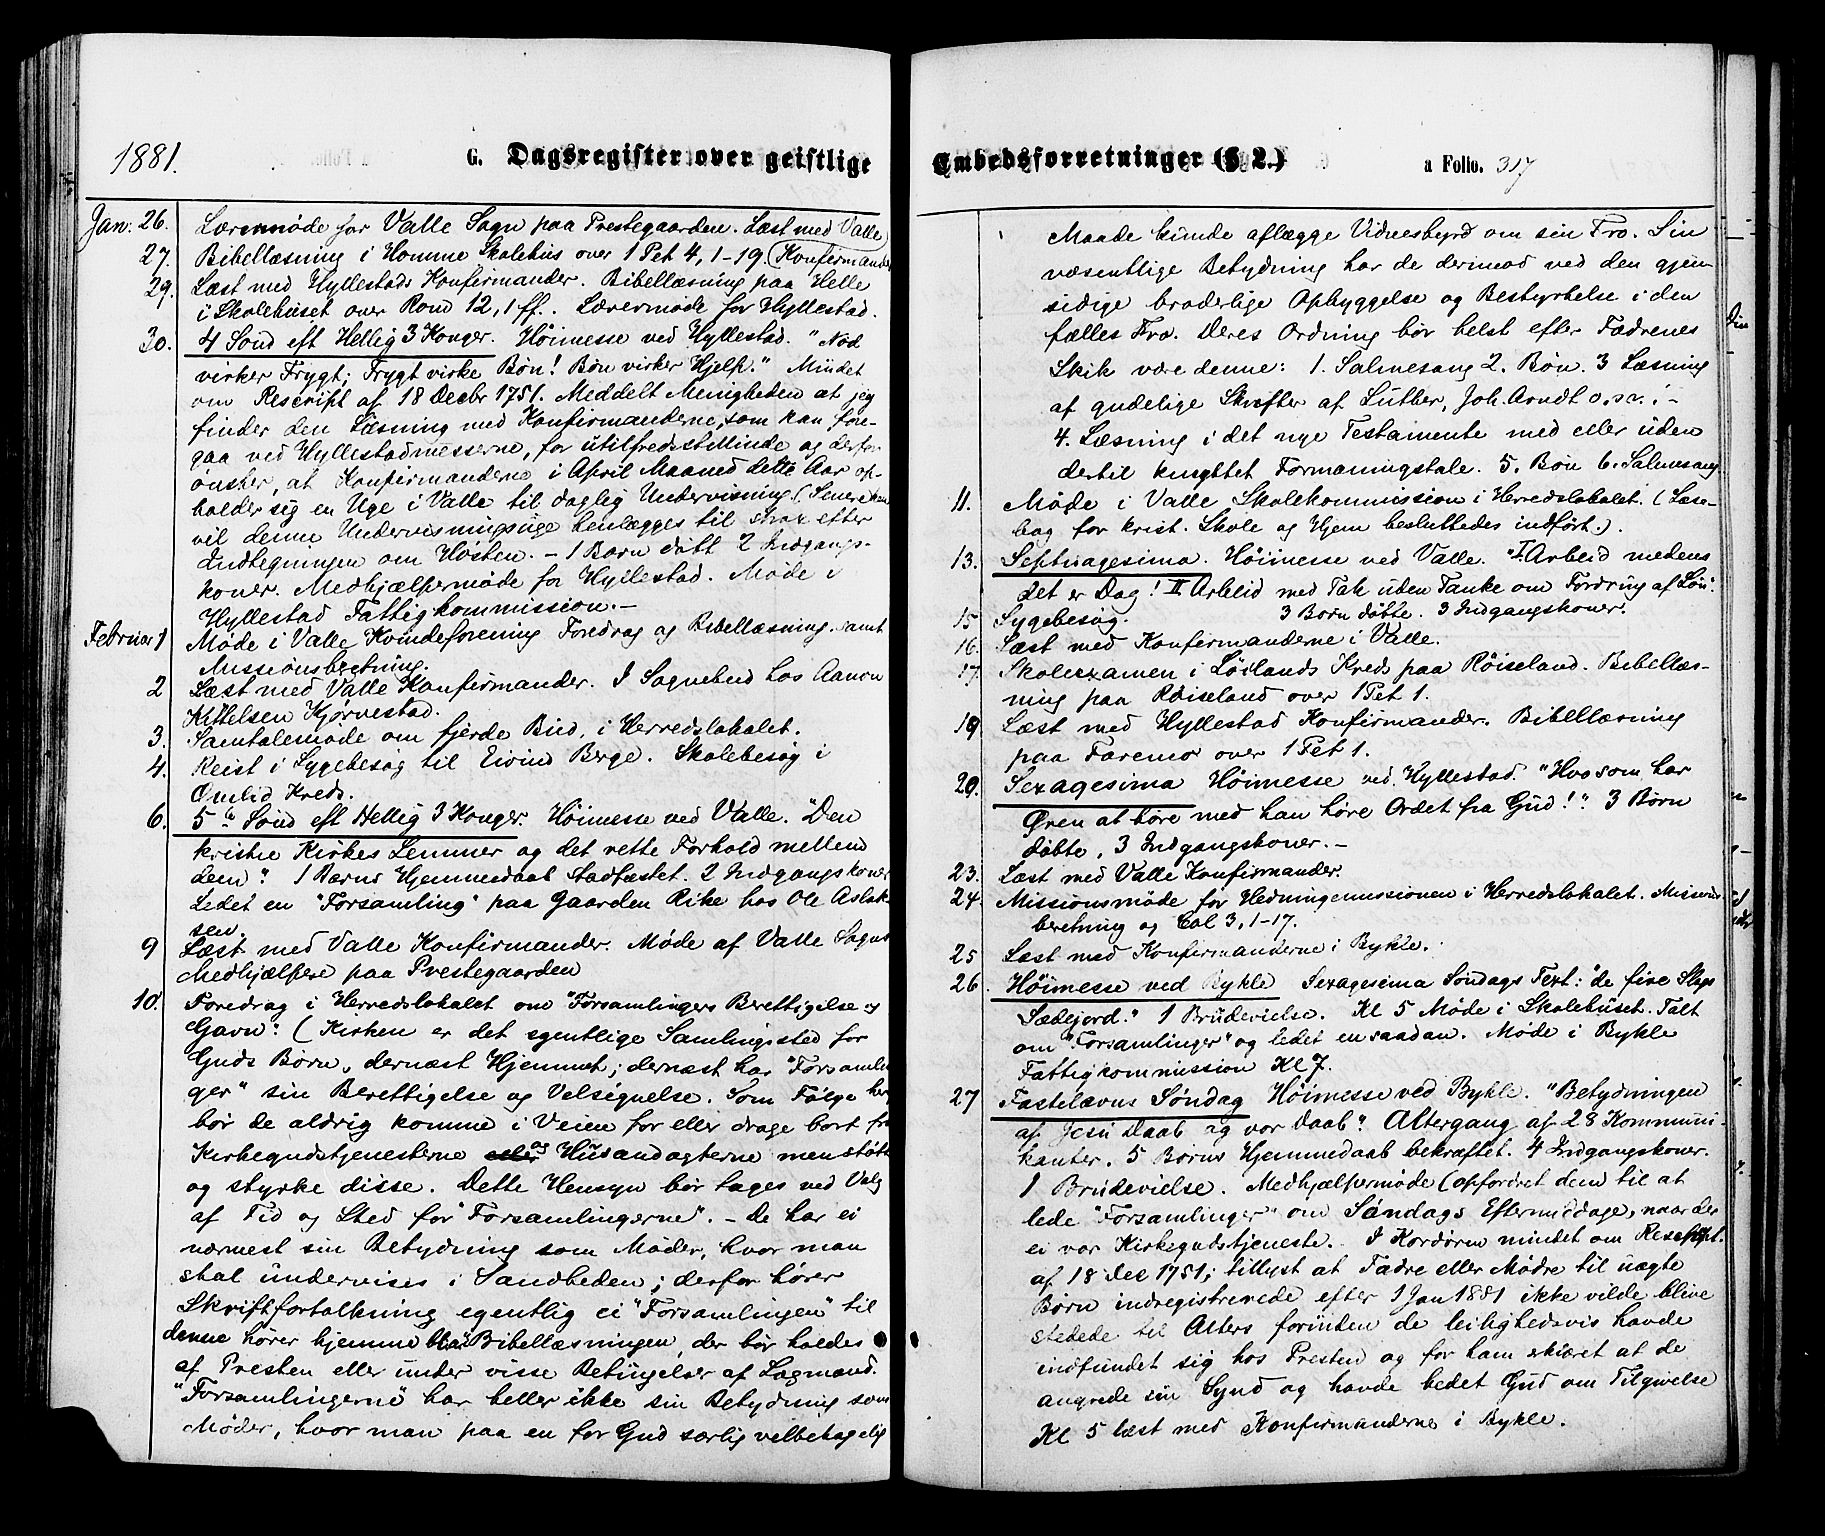 1881.
G. Dagsregister over geistlige
Jan: 26. Læremøde for Valle Sogn paa Prestegaarden. Læst med Valle
27. Bibellæsning i Homme Skolehus over 1 Pet 4, 1-19. Konfirmander
29. Læst med Hyllestads Konfirmander. Bibellæsning paa Helle
i Skolehuset over Rom 12, 1 ff. Læremøde for Hyllestad.
30. 4 Sønd eft Hellig 3 Konger. Höimesse ved Hyllestad. "Nød
virker Frygt; Frygt virke Bøn! Bøn virker Hjelp." Mindet
om Rescript af 18 Decbr 1751. Meddelt Menigheden at jeg
finder den Læsning med Konfirmanderne, som kan fore-
gaa ved Hyllestadmesserne, for utilfredsstillende og derfor
ønsker, at Konfirmanderne i April Maaned dette Aar op-
holder sig en Uge i Valle til daglig Undervisning (Senere
vil denne Undervisningsuge henlægges til strax efter
Indtegningen om Høsten. - 1 Barn døbt 2 Indgangs-
koner. Medhjælpermøde for Hyllestad. Møde i
Hyllestad Fattigkommission. -
Februar 1 Møde i Valle Kvindeforening Foredrag og Bibellæsning samt
Missionsberetning.
2 Læst med Valle Konfirmander. I Sognebud hos Aanon
Kittelsen Kjørvestad.
3. Samtalemøde om fjerde Bud, i Herredslokalet.
4. Reist i Sygebesøg til Eivind Berge. Skolebesøg i
Omlid Kreds.
6. 5te Sønd eft Hellig 3 Konger. Höimesse ved Valle. "Den
kristne Kirkes Lemmer og det rette Forhold mellem
dem". 1 Barns Hjemmedaab stadfæstet. 2 Indgangskoner
Ledet en "Forsamling" paa Gaarden Rike hos Ole Aslak
sen.
9 Læst med Valle Konfirmander. Møde af Valle Sogns
Medhjælpere paa Prestegaarden
10. Foredrag i Herredslokalet om "Forsamlingers Berettigelse og
Gavn": (Kirken er det egentlige Samlingssted for
Guds Børn, dernæst Hjemmet; dernæst har "Forsamlin
ger" sin Berettigelse og Velsignelse. Som Følge
bør de aldrig komme i Veien for eller drage bort fra
Kirkegudstjenesterne og Husandagterne men støtte
og styrke disse. Dette Hensyn bør tages ved Valg
af Tid og Sted for "Forsamlingerne". - De har ei
nærmest sin Betydning som Møder, hvor man
skal undervises i Sandheden; derfor hører
Skriftfortolkning egentlig ei "Forsamlingen" til
denne hører hjemme Bibellæsningen, der bør holdes
af Presten eller under visse Betingelser af Lægmænd.
"Forsamlingerne" har heller ikke sin Betydning som
Møder, hvor man paa en for Gud særlig velbehagelig
Embedsforretninger (§ 2.)
a Folio. 317
Maade kunde aflægge Vidnesbyrd om sin Tro. Sin
væsentlige Betydning har de derimod ved den gjen-
sidige broderlige Opbyggelse og Bestyrkelse i den
fælles Tro. Deres Ordning bør helst efter Fædrenes
Skik være denne: 1. Salmesang 2. Bøn. 3 Læsning
af gudelige Skrifter af Luther, Joh. Arndt o.s.v. -
4. Læsning i det nye Testamente med eller uden
dertil knyttet Formaningstale. 5. Bøn 6. Salmesang.
11. Møde i Valle Skolekommission i Herredslokalet. (Læse-
bog for krist. Skole og Hjem besluttedes indført.).
13. Septuagesima. Höimesse ved Valle. "I Arbeid medens
det er Dag! II Arbeid med Tak uden Tanke om Fordring af Løn".
3 Børn døbte. 3 Indgangskoner.
15 Sygebesøg.
16. Læst med Konfirmanderne i Valle.
17. Skolexamen i Löilands Kreds paa Röiseland. Bibellæs-
ning paa Röiseland over 1 Pet 1.
19 Læst med Hyllestad Konfirmander. Bibellæsning
paa Faremo over 1 Pet 1.
20. Sexagesima Höimesse ved Hyllestad. "Hvo som har
Øren at høre med han høre Ordet fra Gud!". 3 Børn
døbte, 3 Indgangskoner. -
23. Læst med Valle Konfirmander.
24. Missionsmøde for Hedningemissionen i Herredslokalet. Missions
beretning og Col 3, 1-17.
25 Læst med Konfirmanderne i Bykle.
26. Höimesse ved Bykle Sexagesima Søndags Text: "de fire Slags
Sædejord." 1 Brudevielse. Kl 5 Møde i Skolehuset. Talt
om "Forsamlinger" og ledet en saadan. Møde i Bykle
Fattigkommission Kl 7.
27 Fastelavns Søndag Höimesse ved Bykle. "Betydningen
af Jesu Daab og vor Daab". Altergang af 28 Kommuni-
kanter. 5 Børns Hjemmedaab bekræftet. 4 Indgangskoner.
1 Brudevielse. Medhjælpermøde (opfordret dem til at
lede "Forsamlinger" om Søndags Eftermiddage, naar der
ei var Kirkegudstjeneste. I Kordøren mindet om Rescript.
af 18 Dec 1751; tillyst at Fædre eller Mødre til uægte
Børn indregistrerede efter 1 Jan 1881 ikke vilde blive
stedede til Alters forinden de leilighedsvis havde
indfundet sig hos Presten og for ham skriftet at de
angrede sin Synd og havde bedet Gud om Tilgivelse
Kl 5 læst med Konfirmanderne i Bykle.